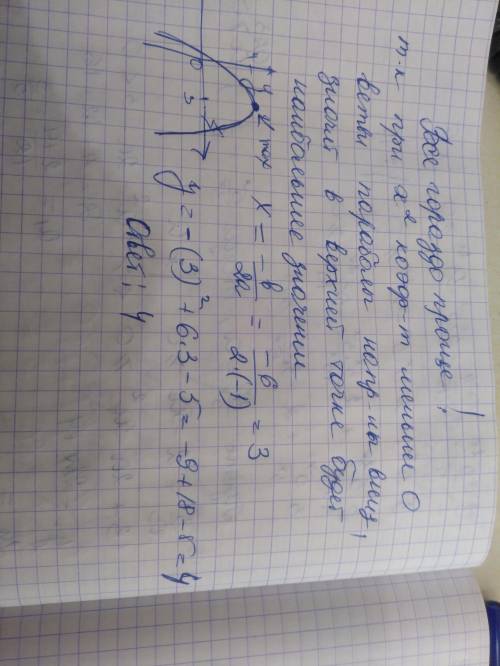 Все гораздо проще!
т.к при x² коэф-т меньше 0
ветви параболы напр-ны вниз,
значит в верхней точке будет
наибольшее значение
y
y max
x = -b/2a = -6/2·(-1) = 3
0
3
x
y = -(3)² + 6·3 - 5 = -9 + 18 - 5 = 4
Ответ: 4